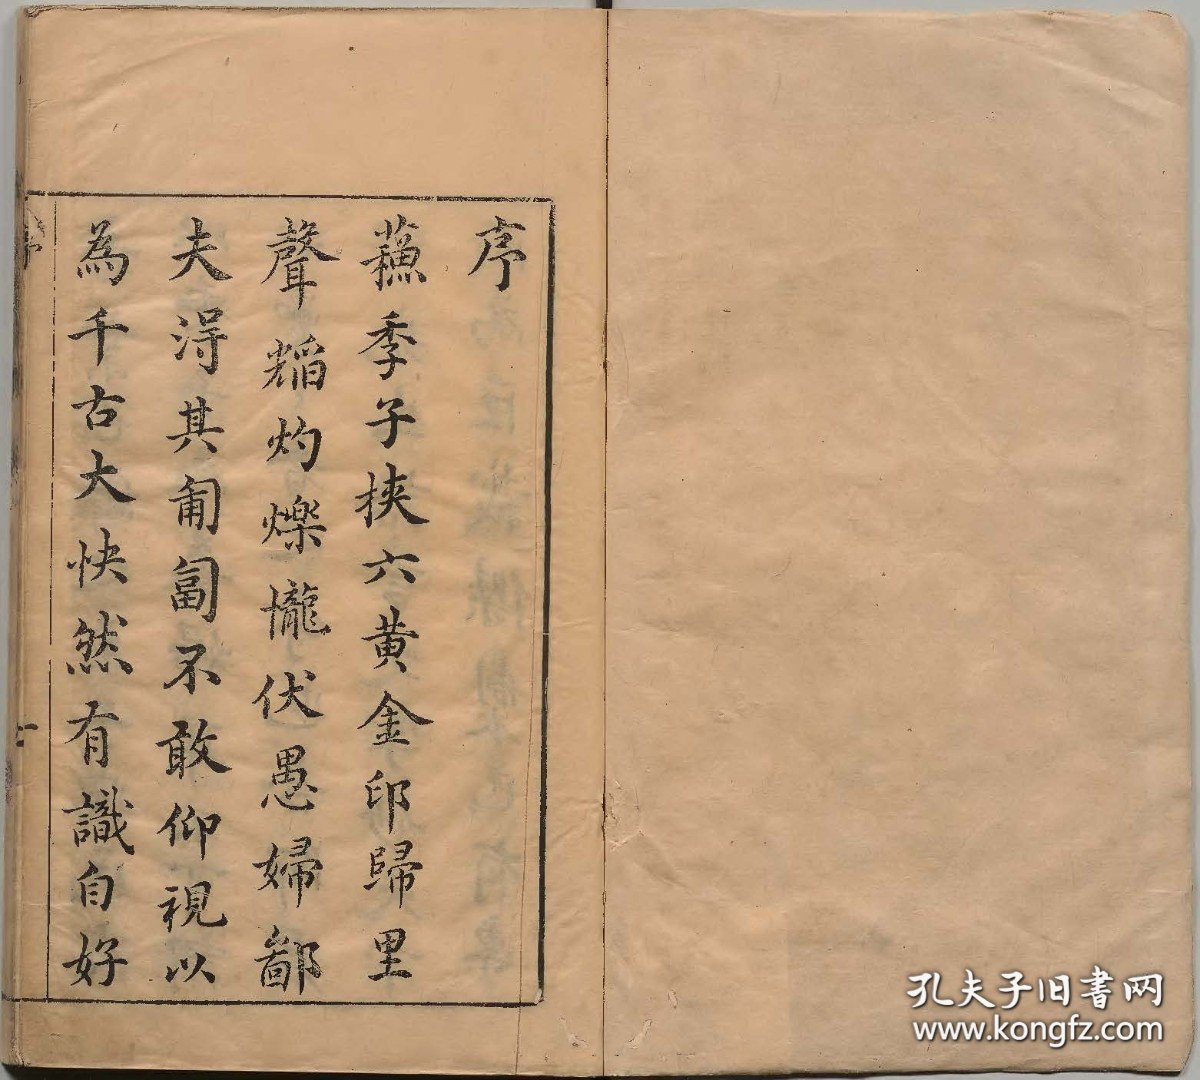 序
蘓季子挾六黄金印歸里
聲熖灼爍櫳伏愚婦鄙
夫淂其匍匐不敢仰視以
為千古大快然有識自好
序
一
孔夫子旧書网
www.kongfz.com